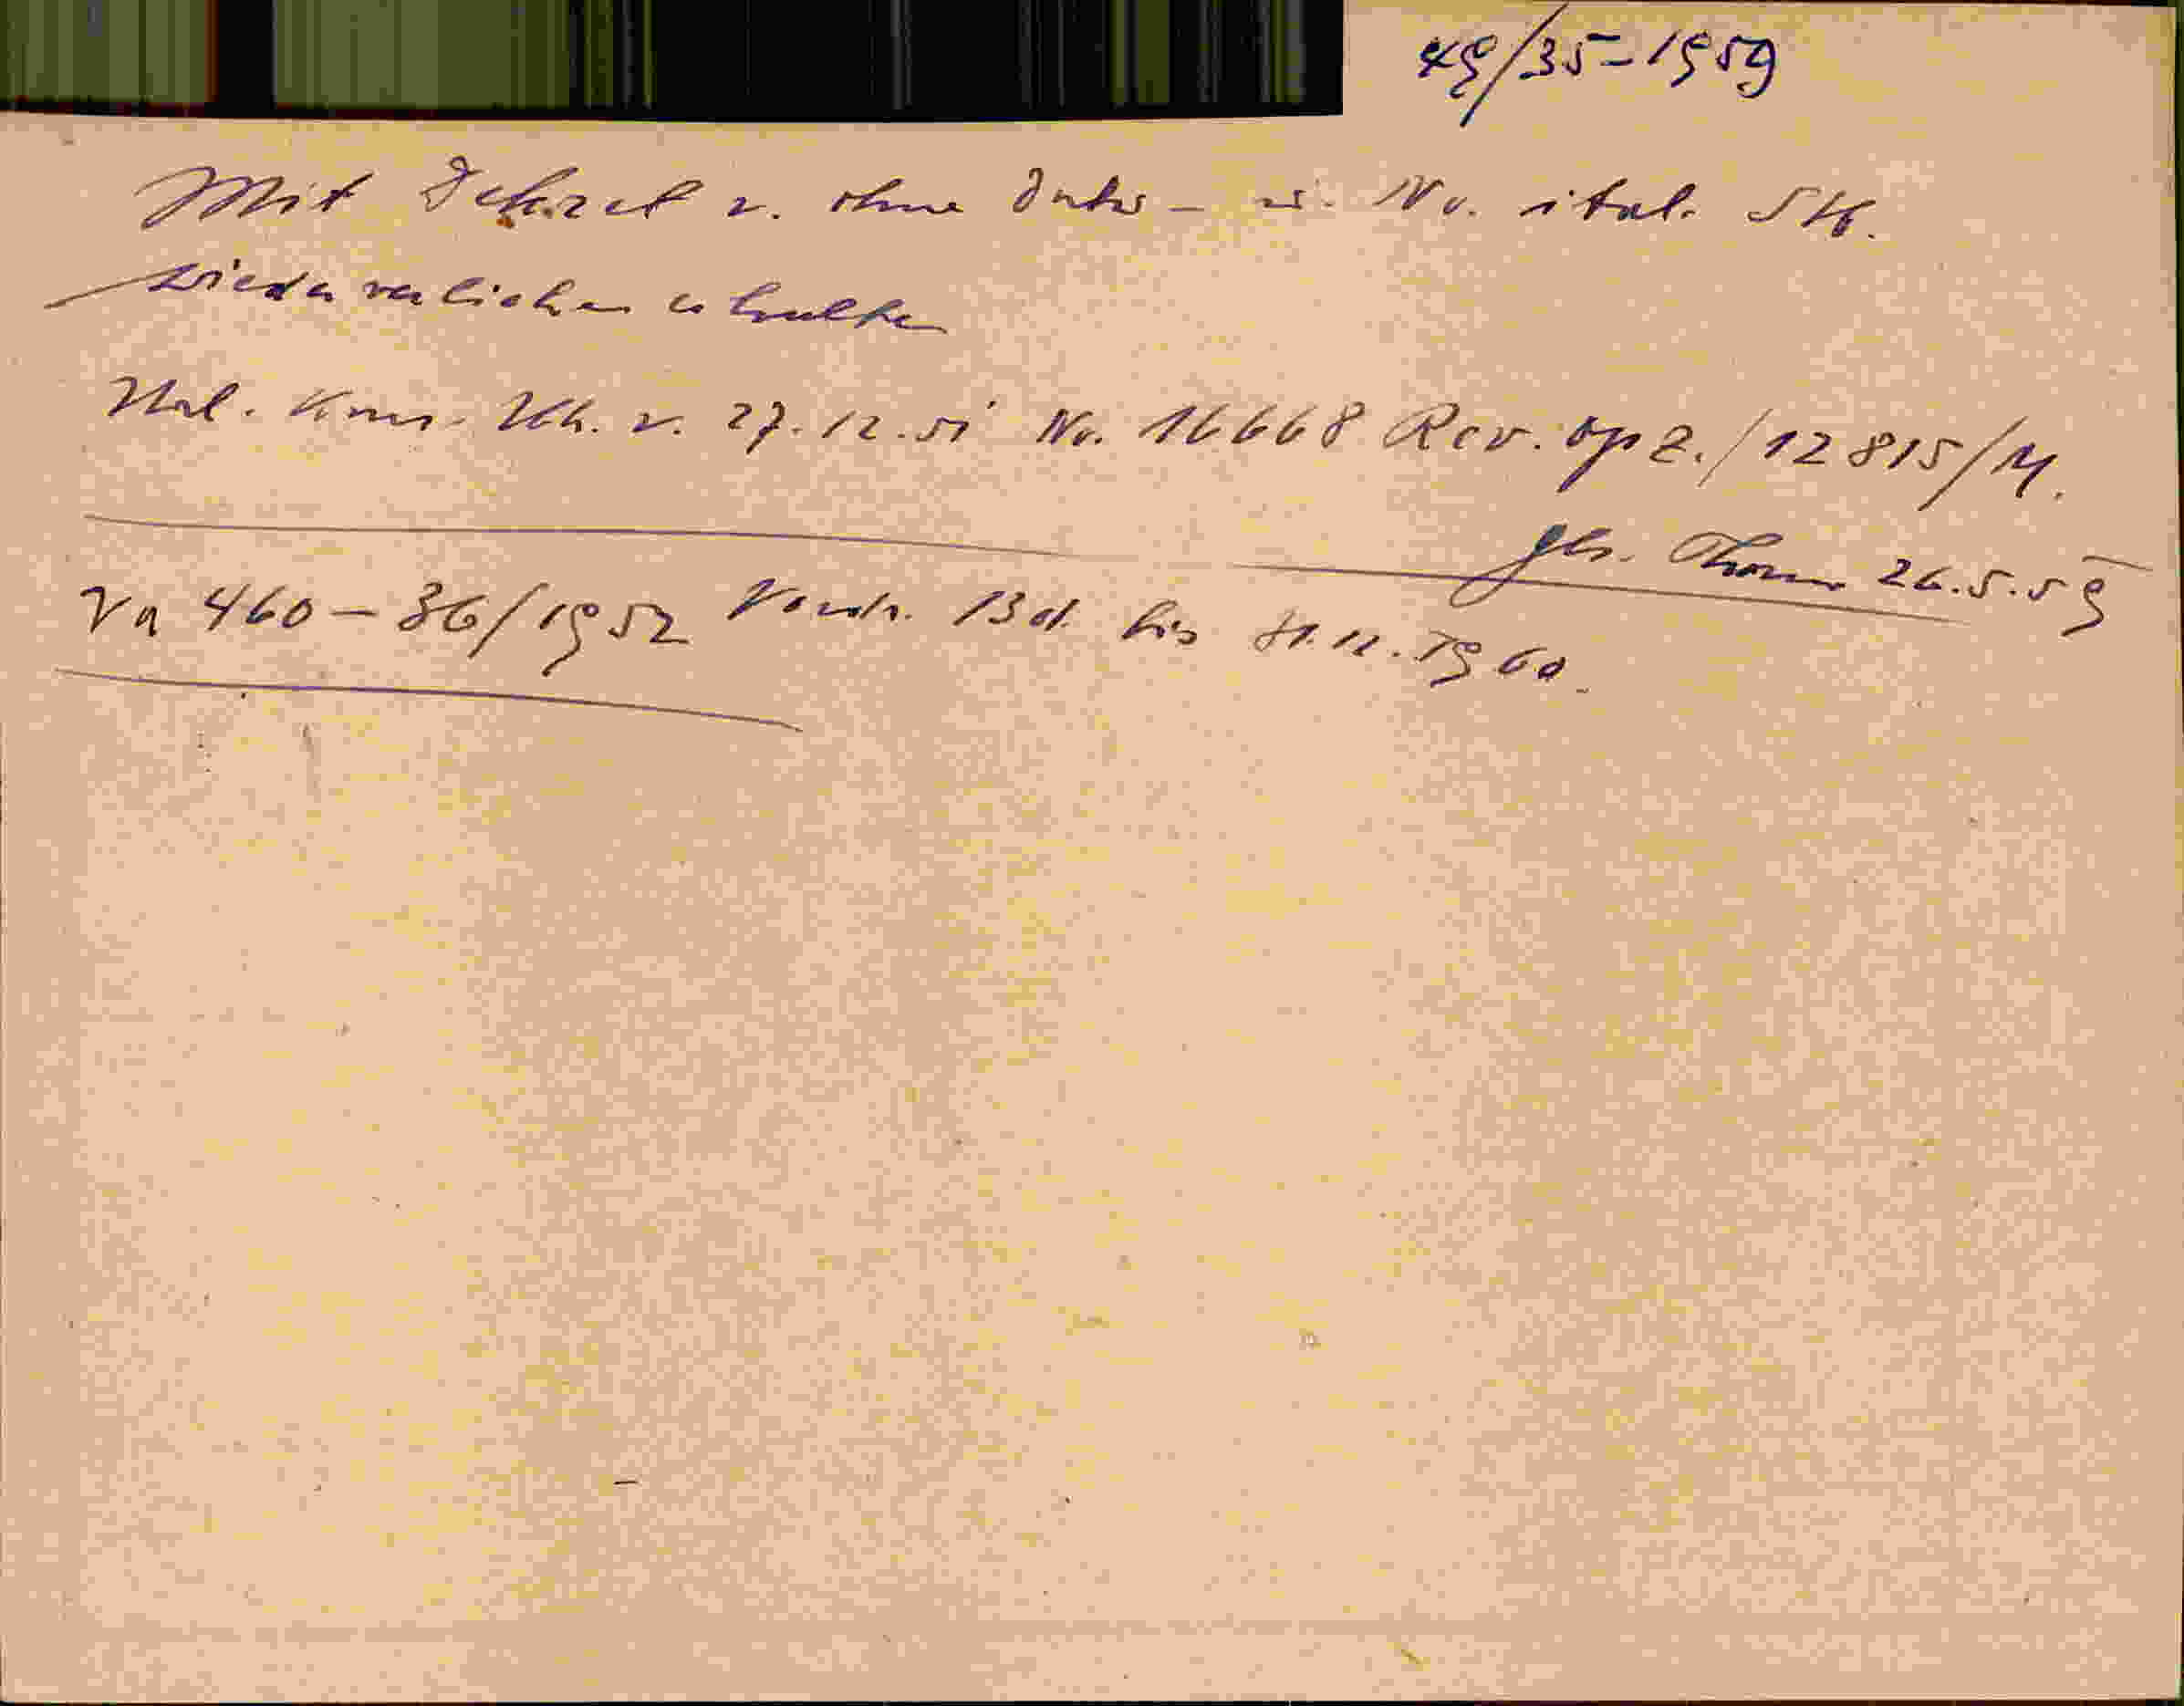 49/35-1959
Mit Dekret v. ohne Datu- u. No. ital. Stb.
wiederverliehen erhalten
Ital. Kons. Ibk. v. 27.12.51 No. 16668 Rev. opz./12815/M.
26.5.59
Va 460-36/1952 Verdr. Bd. bis 31.12.1960.